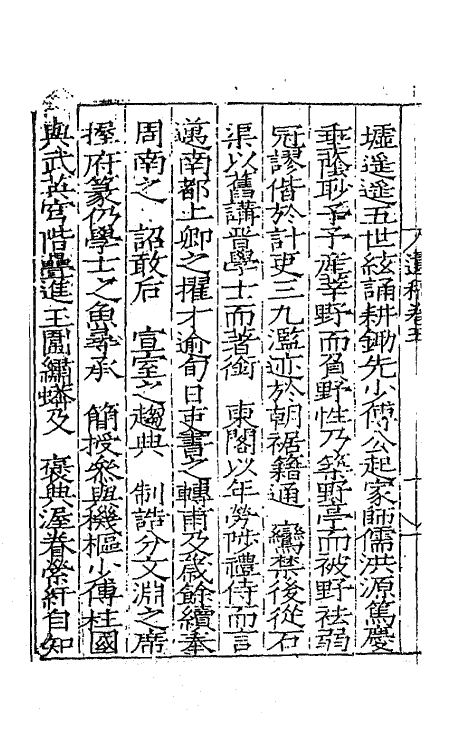 墟遥遥五世絃誦耕鋤先少傅公起家師儒洪源篤慶
垂蔭耿予予産莘野而負野性乃築野亭而被野祛弱
冠謬偕於計吏三九濫迹於朝裾籍通　鸞禁後從石
渠以舊講晉學士而著銜　東閣以年勞陟禮侍而言
邁南都上卿之擢才逾旬日吏書之轉甫乃歲餘續奉
周南之　詔敢后　宣室之趨典　制誥分文淵之席
握府篆仍學士之魚尋承　簡授參與機樞少傅柱國
與武英宫階疊進王圍繡蟒及　褒典渥眷榮紆自知